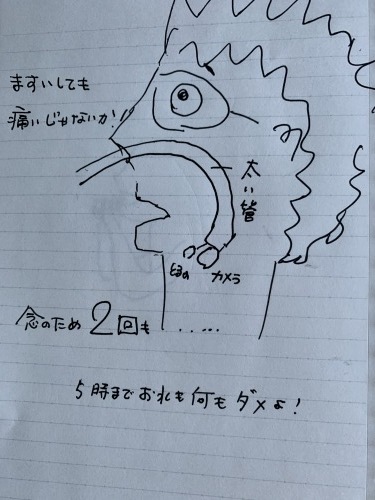 ますいしても
痛いじゃないか!!
太い管
カメラ
念のため2回も……
5時までお水も何もダメよ!